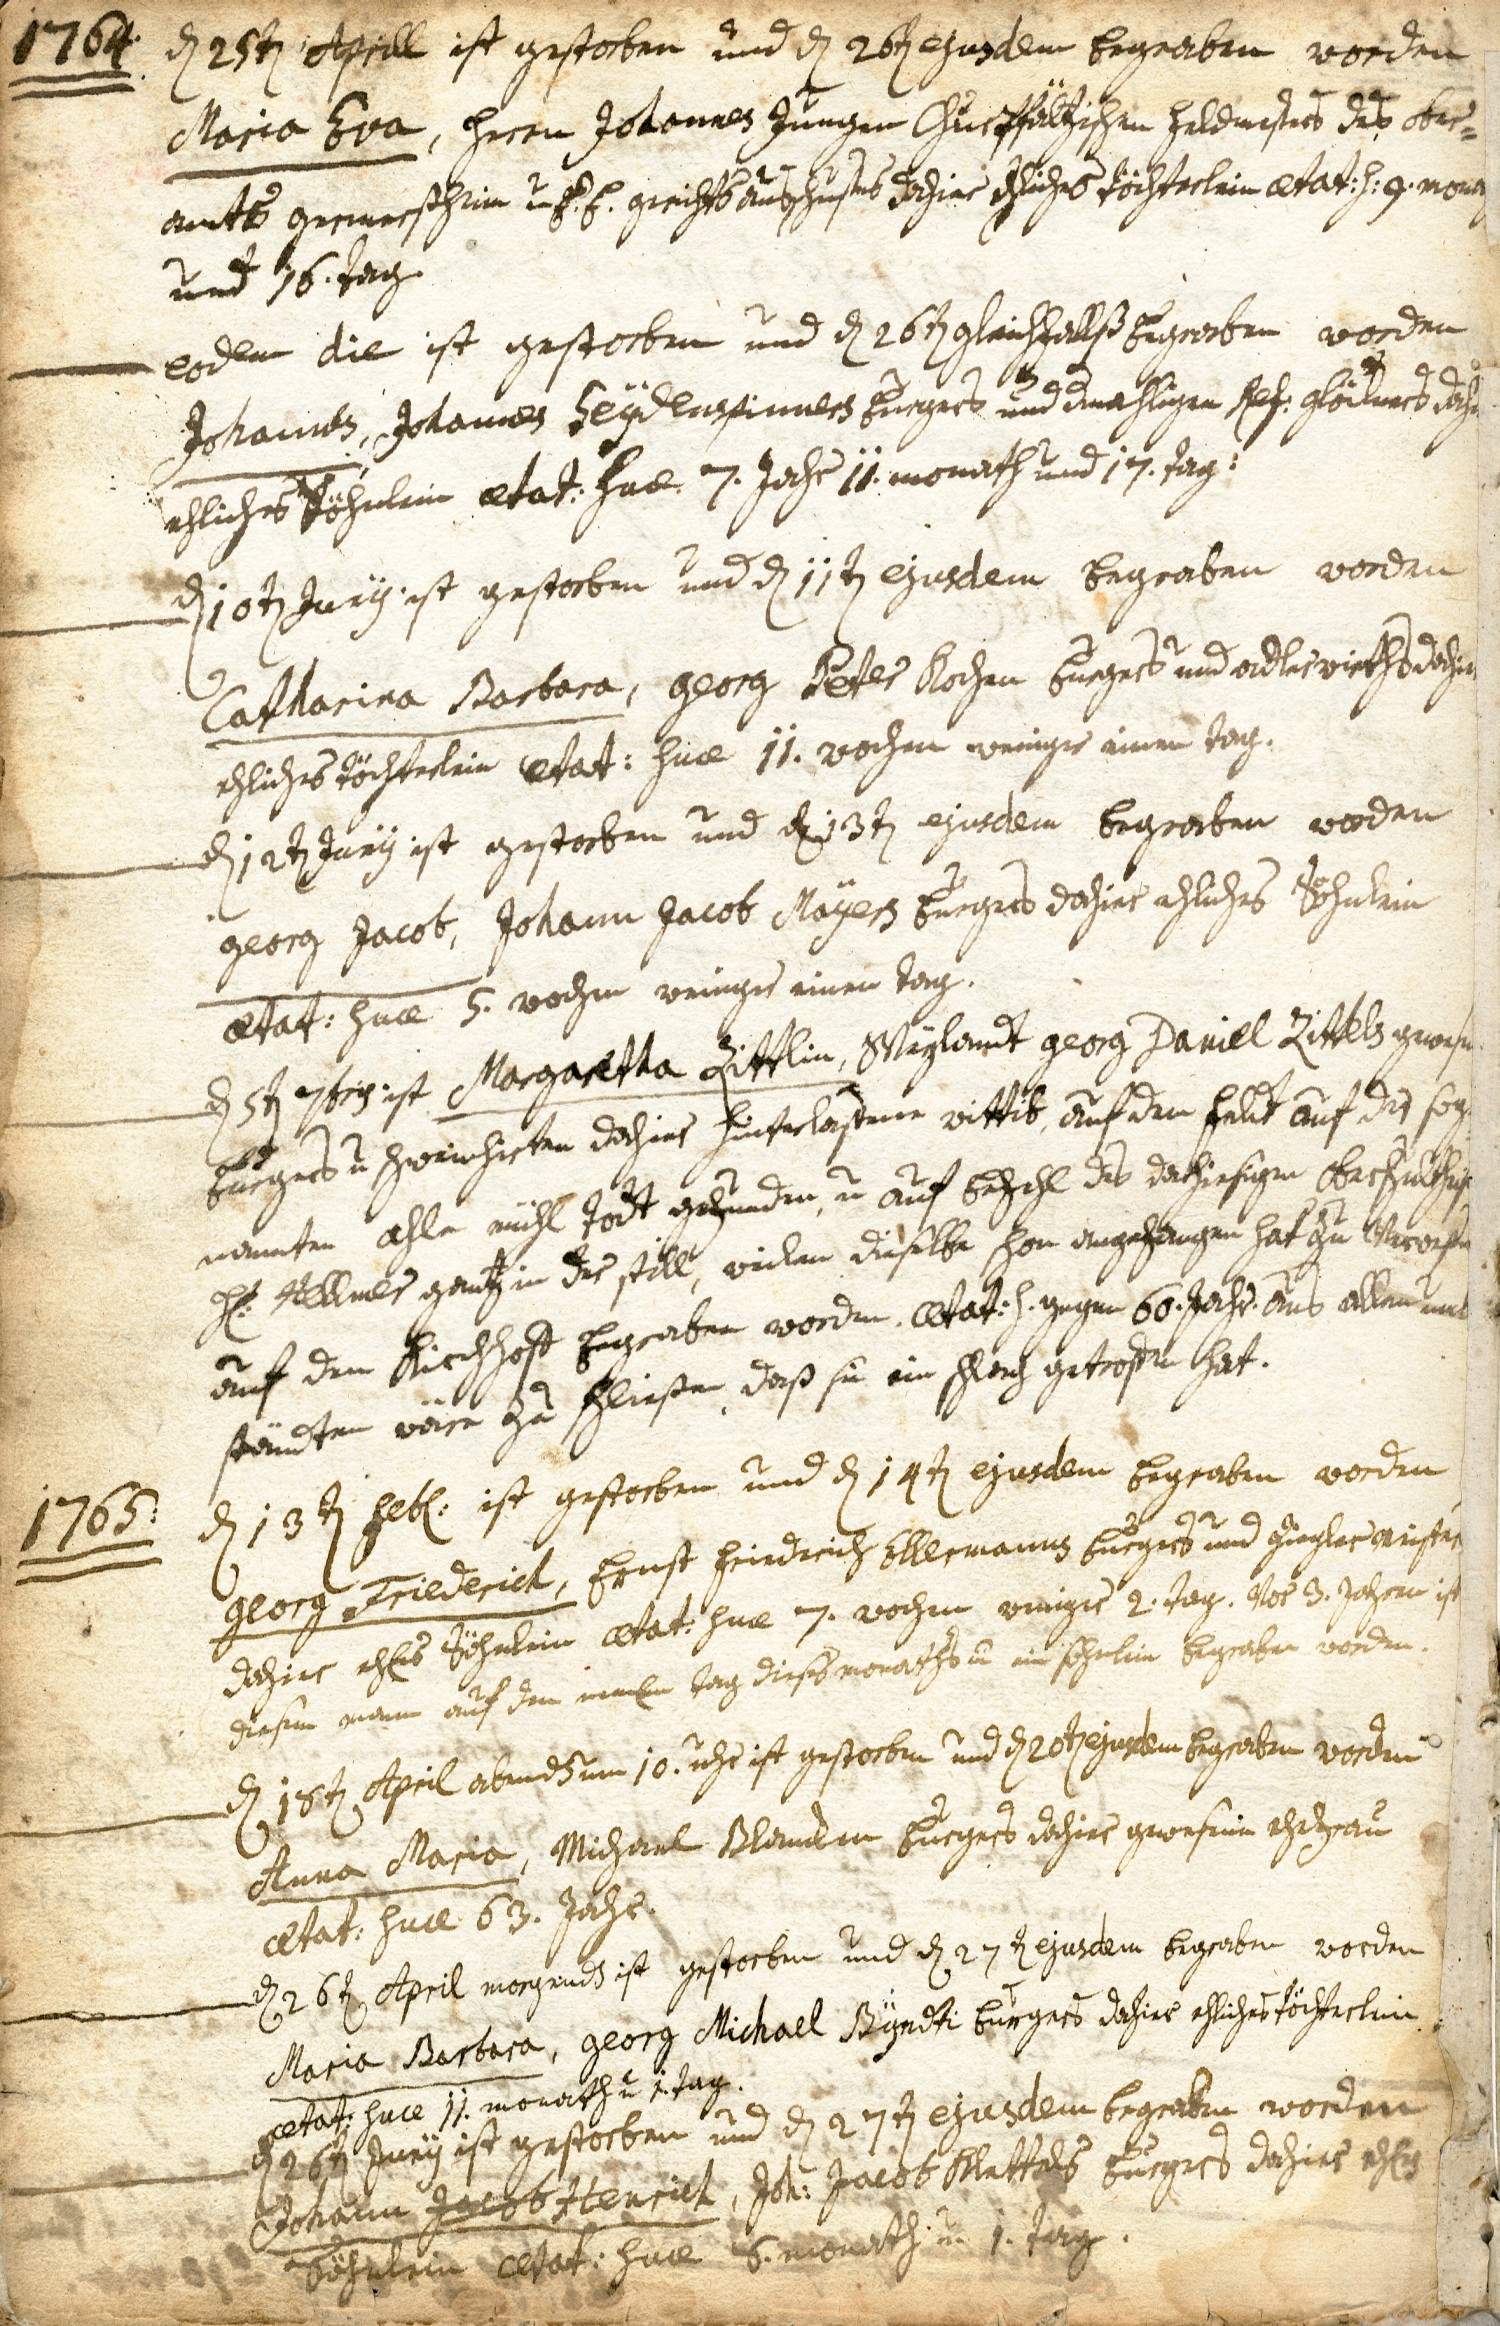 1764. d 25t Aprill ist gestorben und d 26t ejusdem begraben worden
Maria Eva, herrn Johannes Jungen Churpfältzischen feldmesers des ober=
amts germersheim u. E. E. gerichts außschuses dahier ehliches töchterlein ætat: h: 9. mona
und 16. tag.
eodem die ist gestorben und d 26t gleichfallß begraben worden
Johannes, Johannes Seÿdenspinners burgers und dmahligen Ref: glöckners dahi
ehliches söhnlein ætat: huæ 7. Jahr 11. monath und 17. tag:
d 10t Junÿ ist gestorben und d 11t ejusdem begraben worden
Catharina Barbara, georg Peter Kochen burgers und adlerwirths dahier
ehliches töchterlein ætat: huæ 11. wochen weniger einen tag.
d 12t Junÿ ist gestorben und d 13t ejusdem begraben worden
georg Jacob, Johann Jacob Maÿers burgers dahier ehliches söhnlein
ætat: huæ 5. wochen weniger einen tag.
d 5t 7bris ist Margaretha Zittlin, Weylandt georg Daniel Zittels gewese
burgers u schweinhirten dahier hinterlassene wittib, auf dem feldt auf der sog
nannten ahle mühl todt gefunden, u auf befehl des dahiesigen oberschultheis
H: Kellmer gantz in der still, wielen dieselbe schon angefangen hat zu verwesen
auf den Kirchhoff begraben worden. ætat: h. gegen 60. Jahr. aus allen um
ständten wäre zu schliesen, daß sie ein schlag getrofen hat.
1765: d 13t feb: ist gestorben und d 14t ejusdem begraben worden
georg Friederich, Ernst friedrich Ellermanns burgers und ziegler meister
dahier ehles söhnlein ætat: huæ 7. wochen weniger 2. tag. Vor 3. Jahren ist
diesem mann auf den nemlen tag dieses monaths u ein söhnlein begraben worden.
d 18t April abends um 10. uhr ist gestorben und d 20t ejusdem begraben worden
Anna Maria, Michael Blanden burgers dahier gewesene ehefrau
ætat: huæ 63. Jahr.
d 26t April morgends ist gestorben und d 27t ejusdem begraben worden
Maria Barbara, georg Michael burgers dahier ehliches töchterlein
ætat: huæ 11. monath u 1. tag.
d 26t Junÿ ist gestorben und d 27t ejusdem begraben worden
Johann Jacob Henrich, Joh: Jacob Klettels burgers dahier ehles
söhnlein ætat: huæ 6. monath u 1. tag.